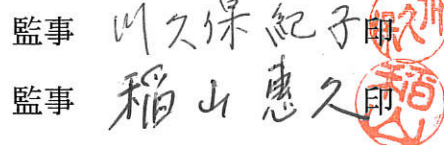 監事 川久保紀子印
監事 稲山惠久印